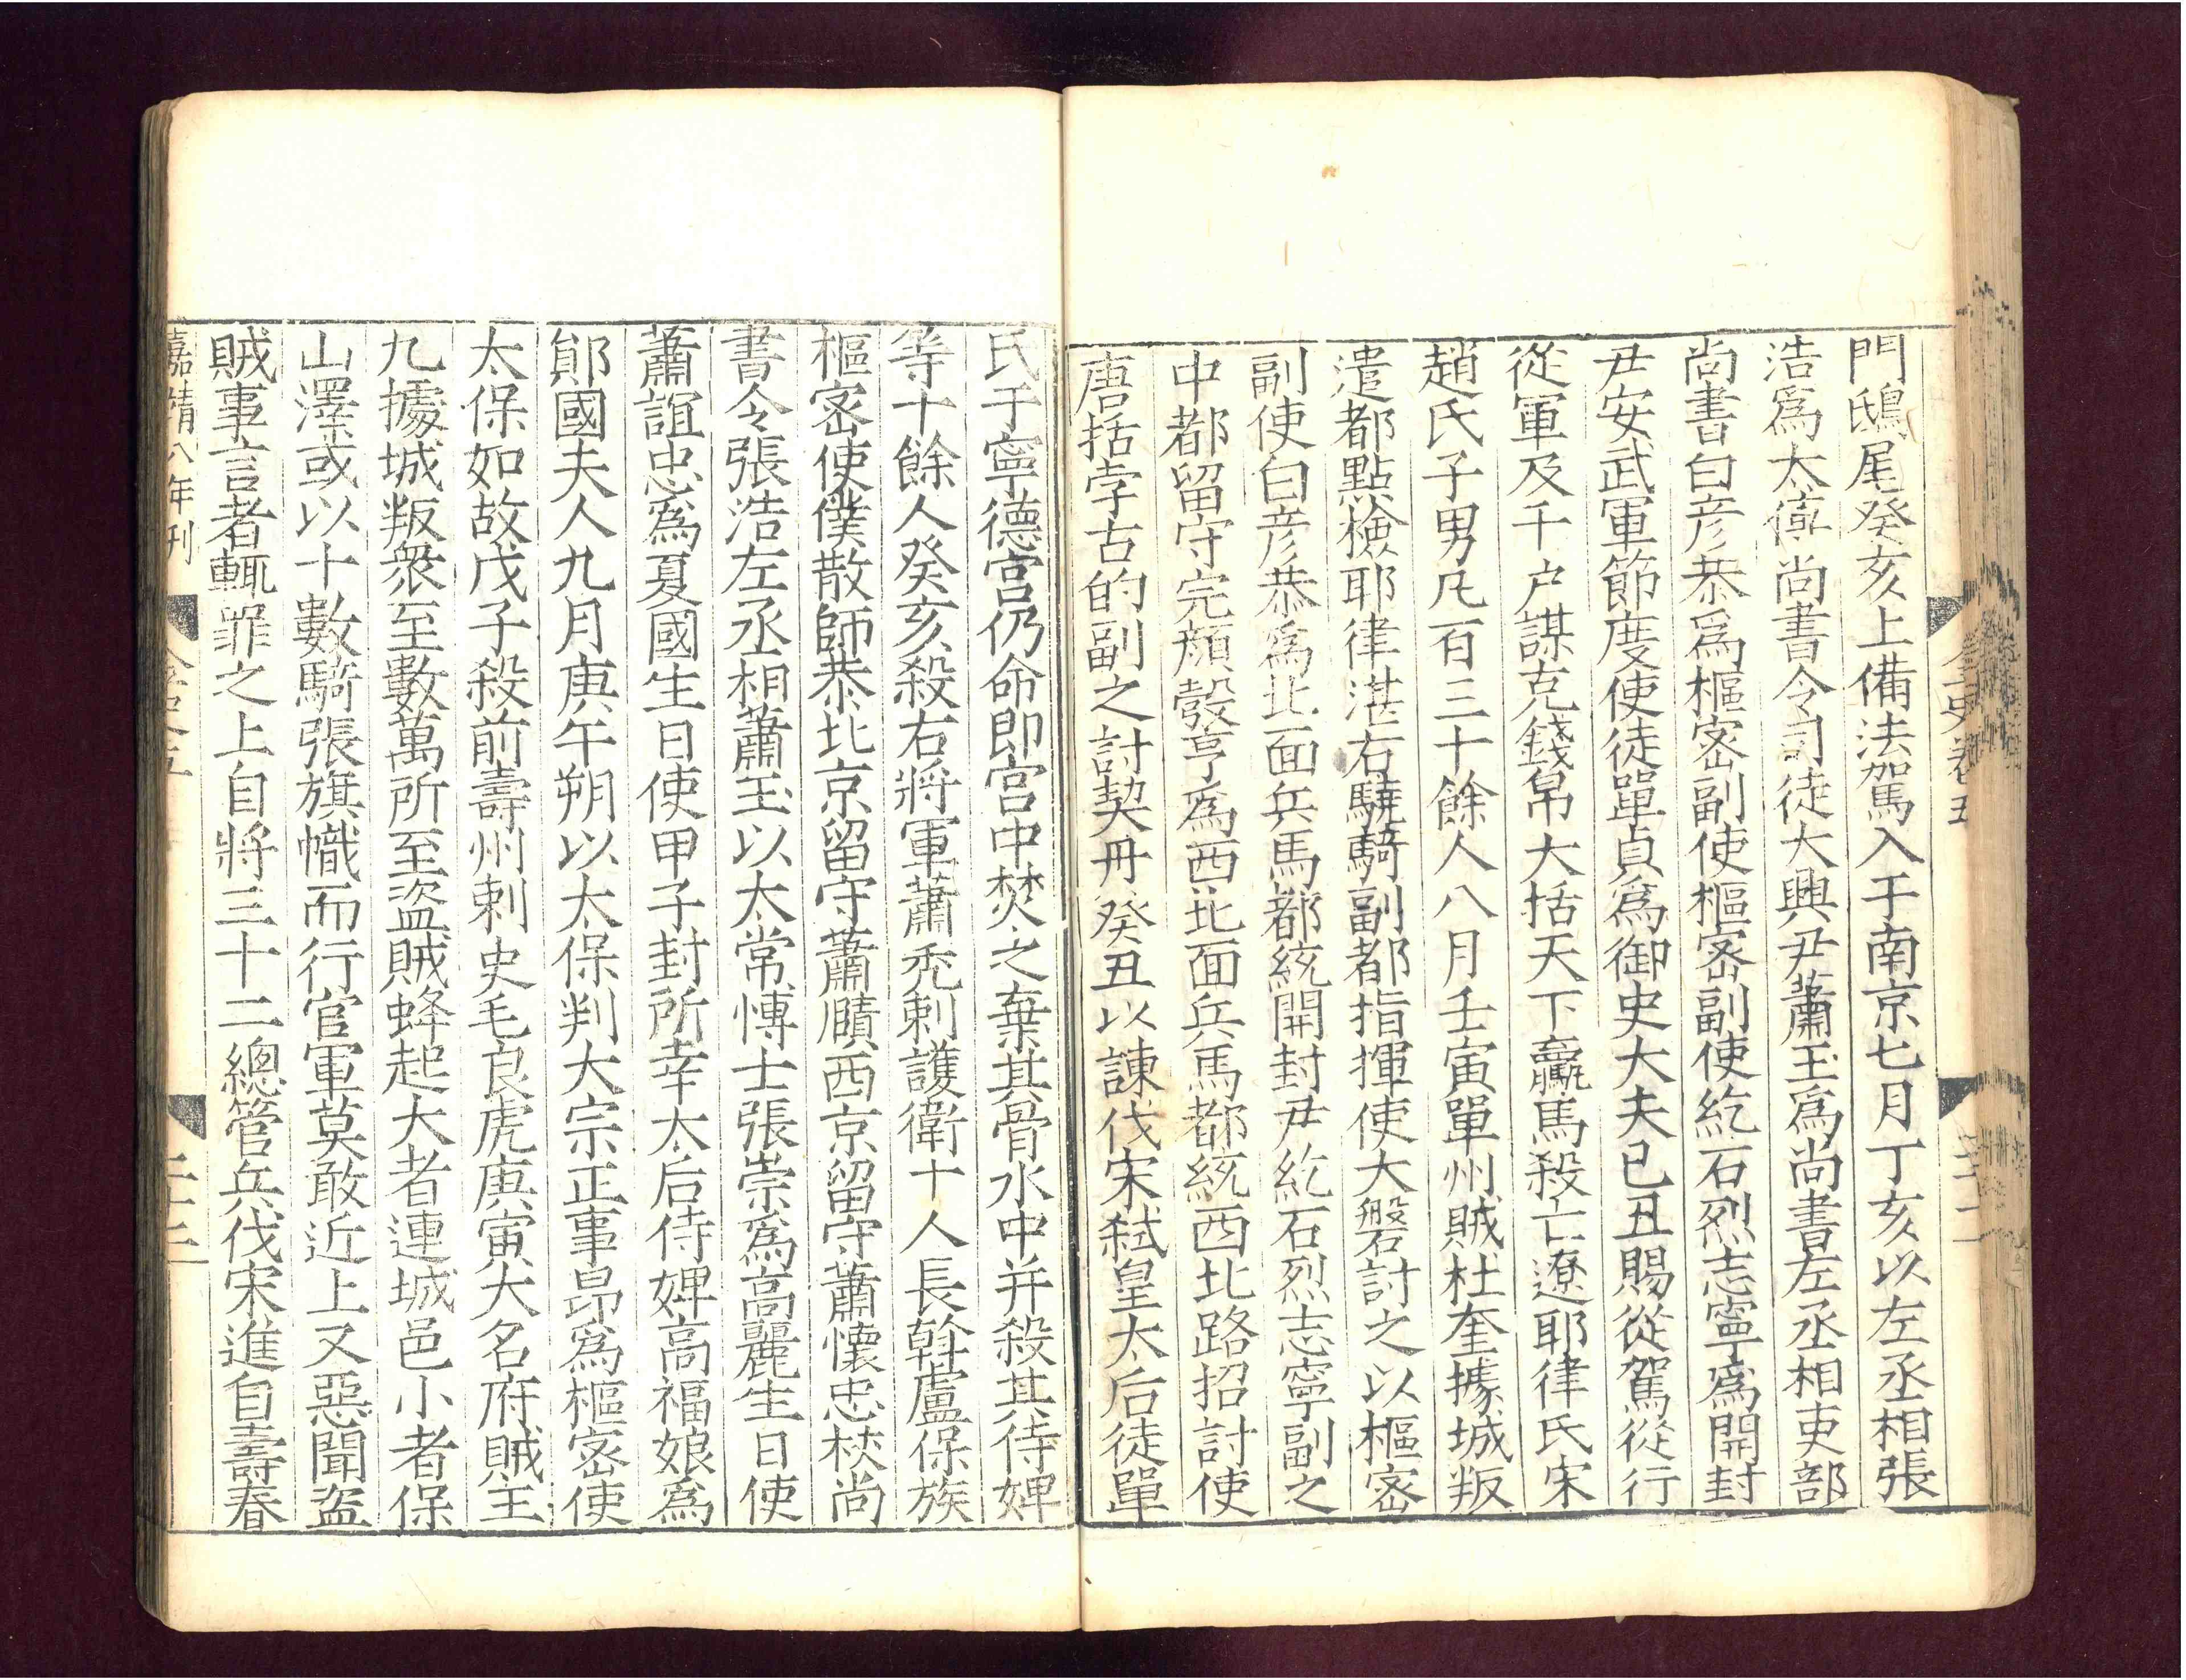 門鴟尾癸亥上備法駕入于南京七月丁亥以左丞相張
浩爲太傅尚書令司徒大興尹蕭玉爲尚書左丞相吏部
尚書白彦恭爲樞密副使樞密副使紇石烈志寧爲開封
尹安武軍節度使徒單貞爲御史大夫已丑賜從駕從行
從軍及千户謀克錢帛大括天下驘馬殺亡遼耶律氏宋
趙氏子男凡百三十餘人八月壬寅單州賊杜奎據城叛
遣都點檢耶律湛右驍騎副都指揮使大磐討之以樞密
副使白彦恭爲北面兵馬都統開封尹紇石烈志寧副之
中都留守完顔彀亨爲西北面兵馬都統西北路招討使
唐括孛古的副之討契丹癸丑以諫伐宋弑皇太后徒單
氏于寧德宫仍命即宫中焚之棄其骨水中并殺其侍婢
等十餘人癸亥殺右將軍蕭禿剌護衛十人長斡盧保族
樞密使僕散師恭北京留守蕭賾西京留守蕭懷忠梜尚
書令張浩左丞相蕭玉以太常愽士張崇爲高麗生日使
蕭誼忠爲夏國生日使甲子封所幸太后侍婢高福娘爲
鄖國夫人九月庚午朔以太保判大宗正事昂爲樞密使
太保如故戊子殺前壽州刺史毛良虎庚寅大名府賊王
九據城叛衆至數萬所至盜賊蜂起大者連城邑小者保
山澤或以十數騎張旗幟而行官軍莫敢近上又惡聞盜
賊事言者輒罪之上自將三十二總管兵伐宋進自壽春
嘉靖八年刊